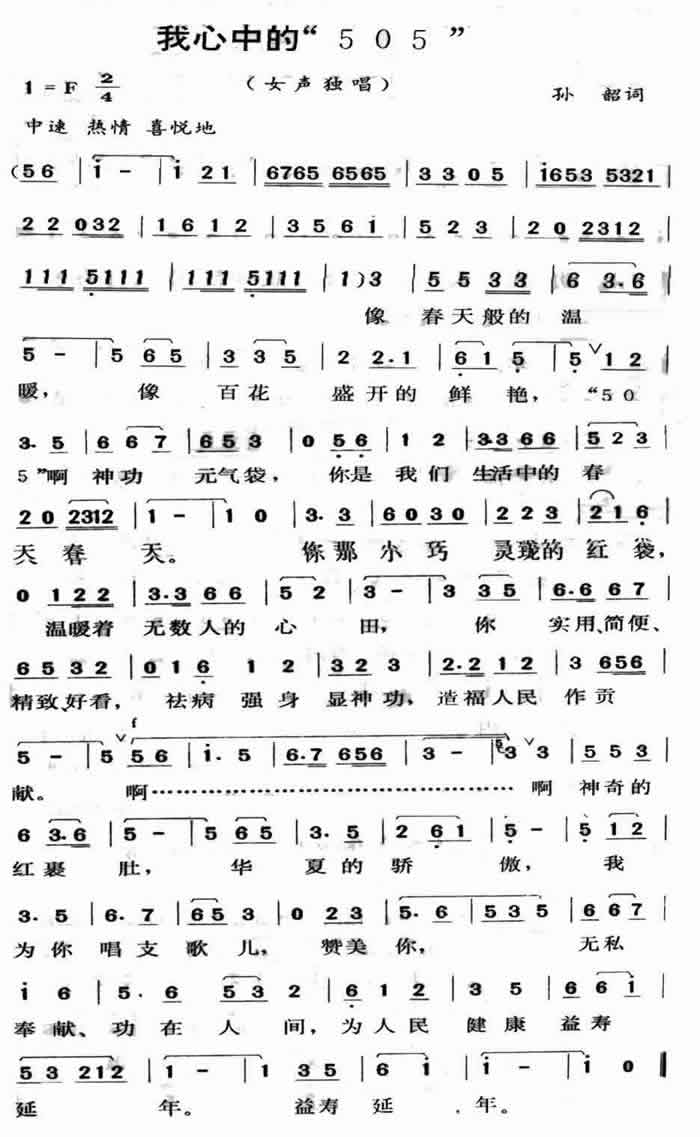 我心中的“５０５”
1=F 2/4 （女声独唱） 孙 韶词
中速 热情 喜悦地
(56 | i - | i 21 | 6765 6565 | 33 05 | i653 5321 |
22 032 | 16 12 | 35 6i | 5 23 | 20 2312 |
111 5111 | 111 5111 | 1) 3 | 5 5 33 | 6 3·6 |
像 春天般的 温
5 - | 5 65 | 3 35 | 2 2·1 | 61 5 | 5 ∨ 12 |
暖， 像 百花 盛开的 鲜 艳， “５０
3· 5 | 6 67 | 653 | 0 56 | 1 2 | 3·3 66 | 5 23 |
５”啊 神功 元气袋， 你是 我们 生活中的 春
20 2312 | 1 - | 10 | 3· 3 | 60 30 | 2 23 | 21 6 |
天 春 天。 你那 小 巧 灵珑的 红 袋，
0 122 | 3·3 66 | 5 2 | 3 - | 3 35 | 6·6 67 |
温暖着 无数人的 心 田， 你 实用、简便、
65 32 | 01 6 | 1 2 | 3 23 | 2·2 12 | 3 656 |
精致、好看， 祛病 强身 显神功，造福人民 作贡
f
5 - | 5 ∨ 56 | i· 5 | 6·7 656 | 3 - | 3 ∨ 3 | 5 53 |
献。 啊………………………………… 啊 神奇的
6 3·6 | 5 - | 5 65 | 3· 5 | 2 61 | 5 - | 5 12 |
红裹 肚， 华 夏的 骄 傲， 我
3· 5 | 6· 7 | 65 3 | 0 23 | 5· 6 | 535 | 6 67 |
为你 唱支 歌儿， 赞美 你， 无私
i 6 | 5 · 6 | 53 2 | 6 12 | 3 5 | 6 6i |
奉献、功在 人 间，为人民 健康 益寿
53 212 | 1 - | 1 35 | 6 i | i - | i 0 ‖
延 年。 益寿 延 年。